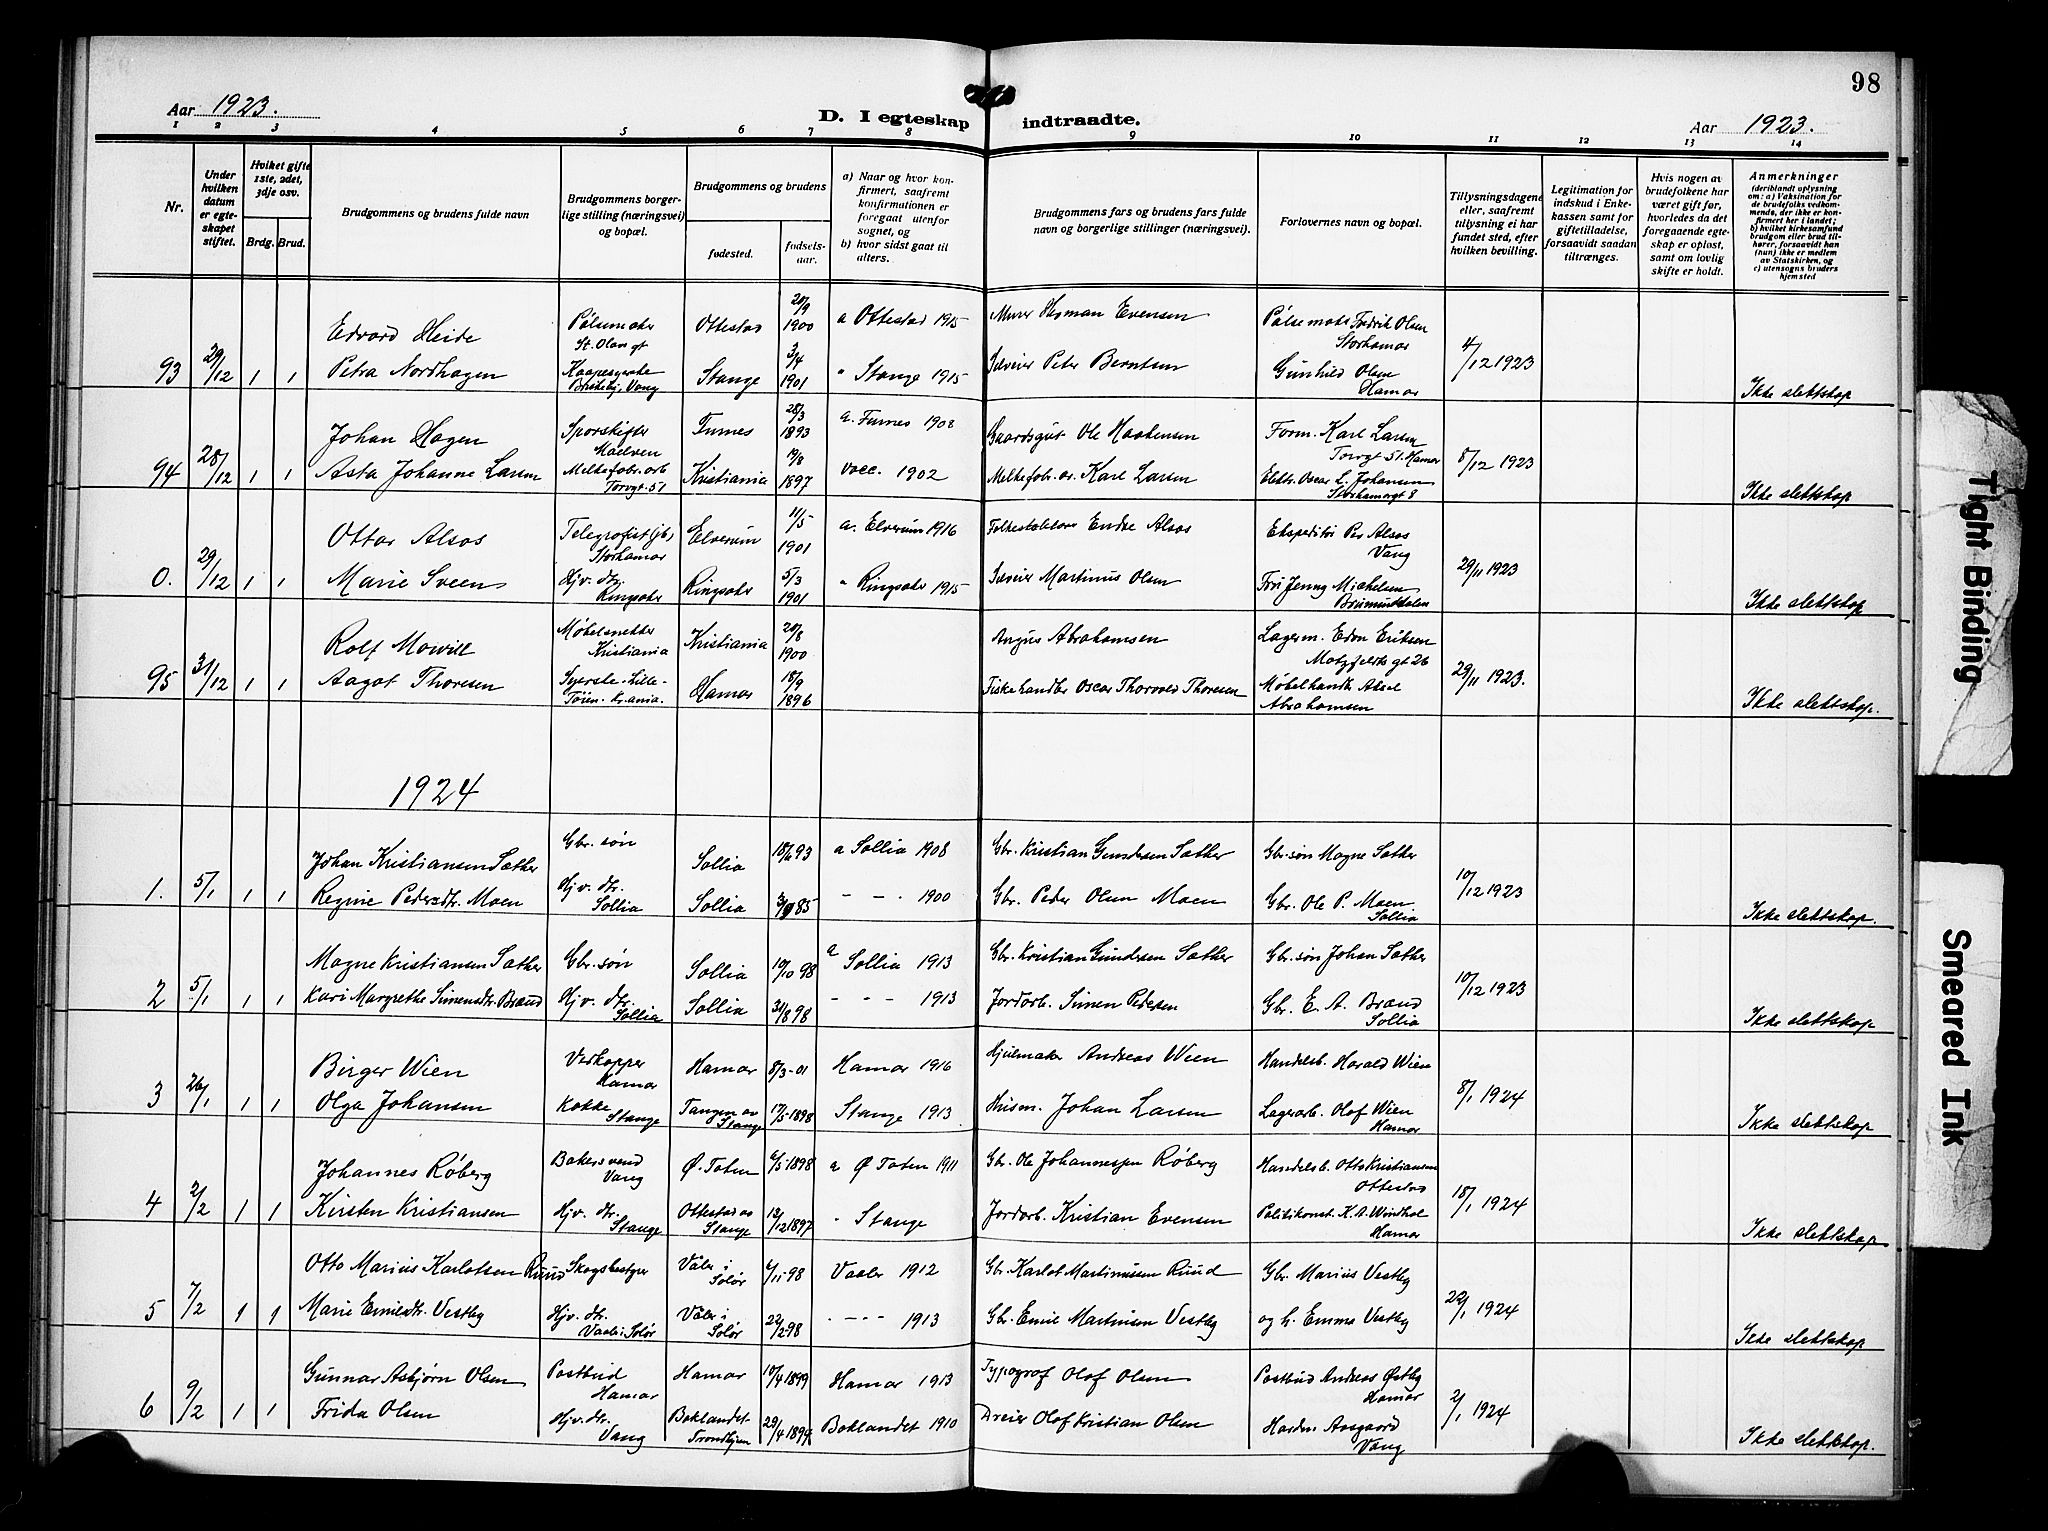 98
Aar 1923.
D. I egteskap indtraadte.
Aar 1923.
1 2 3 4 5 6 7 8 9 10 11 12 13 14
Nr.
Under hvilken datum er egteskapet stiftet.
Hvilket gifte 1ste, 2det, 3dje osv.
Brdg. Brud.
Brudgommens og brudens fulde navn
Brudgommens borgerlige stilling (næringsvei) og bopæl.
Brudgommens og brudens
fødested. fødselsaar.
a) Naar og hvor konfirmert, saafremt konfirmationen er foregaat utenfor sognet, og
b) hvor sidst gaat til alters.
Brudgommens fars og brudens fars fulde navn og borgerlige stillinger (næringsvei).
Forlovernes navn og bopæl.
Tillysningsdagene eller, saafremt tillysning ei har fundet sted, efter hvilken bevilling.
Legitimation for indskud i Enkekassen samt for giftetilladelse, forsaavidt saadan tiltrænges.
Hvis nogen av brudefolkene har været gift før, hvorledes da det foregaaende egteskap er opløst, samt om lovlig skifte er holdt.
Anmerkninger
(deriblandt oplysning om: a) Vaksination for de brudefolks vedkommende, der ikke er konfirmert her i landet; b) hvilket kirkesamfund brudgom eller brud tilhører, forsaavidt han (hun) ikke er medlem av Statskirken, og c) utensogns bruders hjemsted
Edvard Heide Pølsemaker St. Olavs gt Ottestad 20/9 1900 a Ottestad 1915 Murer Herman Evensen Pølsemak. Fredrik Olsen Storhamar
93 29/12 1 1 Petra Nordhagen Stange 3/4 1901 " Stange 1915 Peter Berntsen Gunhild Olsen Hamar 4/12 1923 Ikke slektskap
Johan Hagen Sporskifter Moelven Furnes 28/3 1893 a. Furnes 1908 Gaardsgut Ole Haakensen Form. Karl Larsen Torvgt 51. Hamar
94 28/12 1 1 Asta Johanne Larsen Melkefabr.arb Torvgt. 51 Kristiania 19/8 1897 vacc. 1902 Melkefabr. ar. Karl Larsen Elektr. Oscar L. Johansen Storhamargt 8 8/12 1923 Ikke slektskap
Ottar Alsos Telegrafist (jb) Storhamar Elverum 11/5 1901 a. Elverum 1916 Folkeskolelærer Endre Alsos Ekspeditør Per Alsos Vang
0. 29/12 1 1 Marie Sveen Hjv. dtr. Ringsaker Ringsaker 5/3 1901 " Ringsaker 1915 Martinus Olsen Fru Jenny Mickelsen Brumunddalen 29/11 1923 Ikke slektskap
Rolf Mowill Møbelsnekker Kristiania Kristiania 20/8 1900 Angus Abrahamsen Lagerm. Edon Eriksen Motzfeldts gt 26
95 31/12 1 1 Aagot Thoresen Syerske Lille-Tøien. Kr.ania. Hamar 18/9 1896 Fiskehandler Oscar Thorvald Thoresen Møbelhandl. Aksel Abrahamsen 29/11 1923. Ikke slektskap.
1924
Johan Kristiansen Sæther Gbr. søn Sollia 18/6 93 a Sollia 1908 Gbr. Kristian Gundersen Sæther Gbr.søn Magne Sæther
1. 5/1 1 1 Regine Pedersdtr. Moen Hjv. dtr. Sollia Sollia 3/9 85 - - . 1900 Gbr. Peder Olsen Moen Gbr. Ole P. Moen. Sollia 10/12 1923 Ikke slektskap.
Magne Kristiansen Sæther Gbr. søn Sollia 10/10 98 a Sollia 1913 Gbr. Kristian Gundersen Sæther Gbr. søn Johan Sæther
2 5/1 1 1 Kari Margrethe Simensdtr. Brænd Hjv. dtr. Sollia Sollia 31/8 98 - - - 1913 Jordarb. Simen Pedersen Gbr. E. A. Brænd Sollia 10/12 1923 Ikke slektskap
Birger Wien Verkopper Hamar Hamar 8/3-01 Hamar 1916 Hjulmaker Andreas Wien Handelsb. Harald Wien
3 26/1 1 1 Olga Johansen Kokke Stange Tangen av Stange 17/5-1898 Stange 1913 Husm. Johan Larsen Lagerarb. Olof Wien Hamar 8/1 1924 Ikke slektskap
Johannes Røberg Bakersvend Vang Ø. Toten 6/5-1898 a Ø Toten 1911 Gbr. Ole Johannessen Røberg Handelsb. Otto Kristiansen Ottestad
4 2/2 1 1 Kirsten Kristiansen Hjv. dtr. Stange Ottestad av Stange 12/12 1897 " Stange Jordarb. Kristian Evensen Politikonst. K. A. Windhol Hamar 18/1 1924 Ikke slektskap
Otto Marius Karlotsen Ruud Skogsbestyrer Våler i Solør 6/11-98 Vaaler 1912 Gbr. Karlot Martinusen Ruud Gbr. Marius Vestby
5 7/2 1 1 Marie Emilsdtr. Vestby Hjv. dtr. Vaaler i Solør Våler i Solør 22/2 98 . - - - 1913 Gbr. Emil Martinsen Vestby og h. Emma Vestby 22/1 1924 Ikke slektskap
Gunnar Asbjørn Olsen Postbud Hamar Hamar 10/4 1899 Hamar 1913 Typograf Olof Olsen Postbud Andreas Østby Hamar
6 9/2 1 1 Frida Olsen Hjv. dtr. Vang Baklandet Trondhjem 29/4 1894 Baklandet 1910 Dreier Olof Kristian Olsen Aasgaard Vang 2/1 1924 Ikke slektskap.
Tight Binding
Smeared Ink